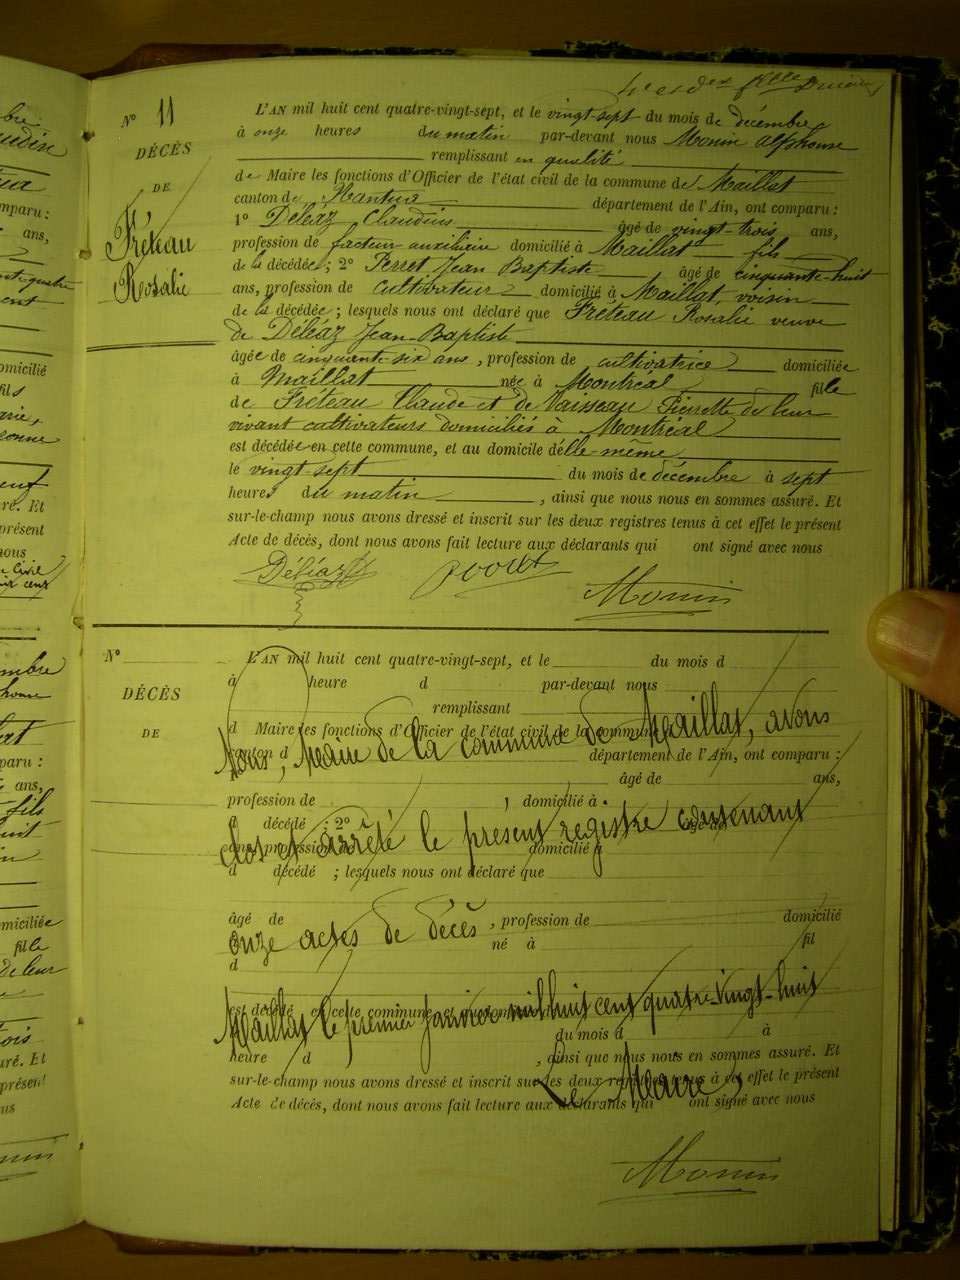 N° 11
DÉCÈS
DE
Fréteau
Rosalie
L'AN mil huit cent quatre-vingt-sept, et le vingt-sept du mois de décembre
à onze heures du matin par-devant nous Monin Alphonse
remplissant en qualité
de Maire les fonctions d'Officier de l'état civil de la commune de Maillat
canton de Nantua département de l'Ain, ont comparu :
1° Déléaz Claudius âgé de vingt-trois ans,
profession de facteur auxiliaire domicilié à Maillat fils
de la décédée ; 2° Perret Jean Baptiste âgé de cinquante-huit
ans, profession de cultivateur domicilié à Maillat, voisin
de la décédée ; lesquels nous ont déclaré que Fréteau Rosalie veuve
de Déléaz Jean-Baptiste
âgée de cinquante-six ans, profession de cultivatrice domiciliée
à Maillat née à Montréal fille
de Fréteau Claude et de Vaisseau Pierrette de leur
vivant cultivateurs domiciliés à Montréal
est décédée en cette commune, et au domicile d'elle-même
le vingt-sept du mois de décembre à sept
heures du matin, ainsi que nous nous en sommes assuré. Et
sur-le-champ nous avons dressé et inscrit sur les deux registres tenus à cet effet le présent
Acte de décès, dont nous avons fait lecture aux déclarants qui ont signé avec nous
Déléaz Monin
N°
DÉCÈS
DE
L'AN mil huit cent quatre-vingt-sept, et le du mois d
à heure d par-devant nous
remplissant
d Maire les fonctions d'Officier de l'état civil de la commune
Nous, Maire de la commune de Maillat, avons
canton d département de l'Ain, ont comparu :
âgé de ans,
profession de domicilié à
d décédé ; 2°
clos et arrêté le présent registre contenant
ans, profession domicilié à
d décédé ; lesquels nous ont déclaré que
âgé de , profession de domicilié
onze actes de décès
né à fil
d
est décédé en cette commune
Maillat le premier janvier mil huit cent quatre-vingt-huit
du mois d à
heure d , ainsi que nous nous en sommes assuré. Et
sur-le-champ nous avons dressé et inscrit sur les deux registres tenus à cet effet le présent
Le Maire,
Acte de décès, dont nous avons fait lecture aux déclarants qui ont signé avec nous
Monin